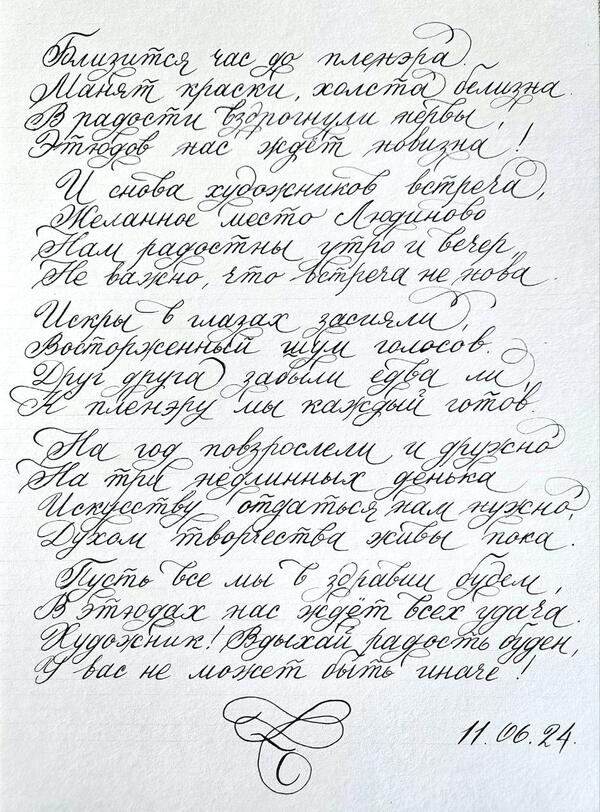 Близится час до пленэра.
Манят краски, холста белизна.
В радости вздрогнули нервы,
Этюдов нас ждёт новизна!
И снова художников встреча,
Желанное место Людиново
Нам радостны утро и вечер,
Не важно, что встреча не нова.
Искры в глазах засияли,
Восторженный шум голосов.
Друг друга забыли едва ли,
К пленэру мы каждый готов.
На год повзрослели и дружно
На три недлинных денька
Искусству отдаться нам нужно,
Духом творчества живы пока.
Пусть все мы в здравии будем,
В этюдах нас ждёт всех удача.
Художник! Вдыхай радость буден,
У вас не может быть иначе!
11.06.24.